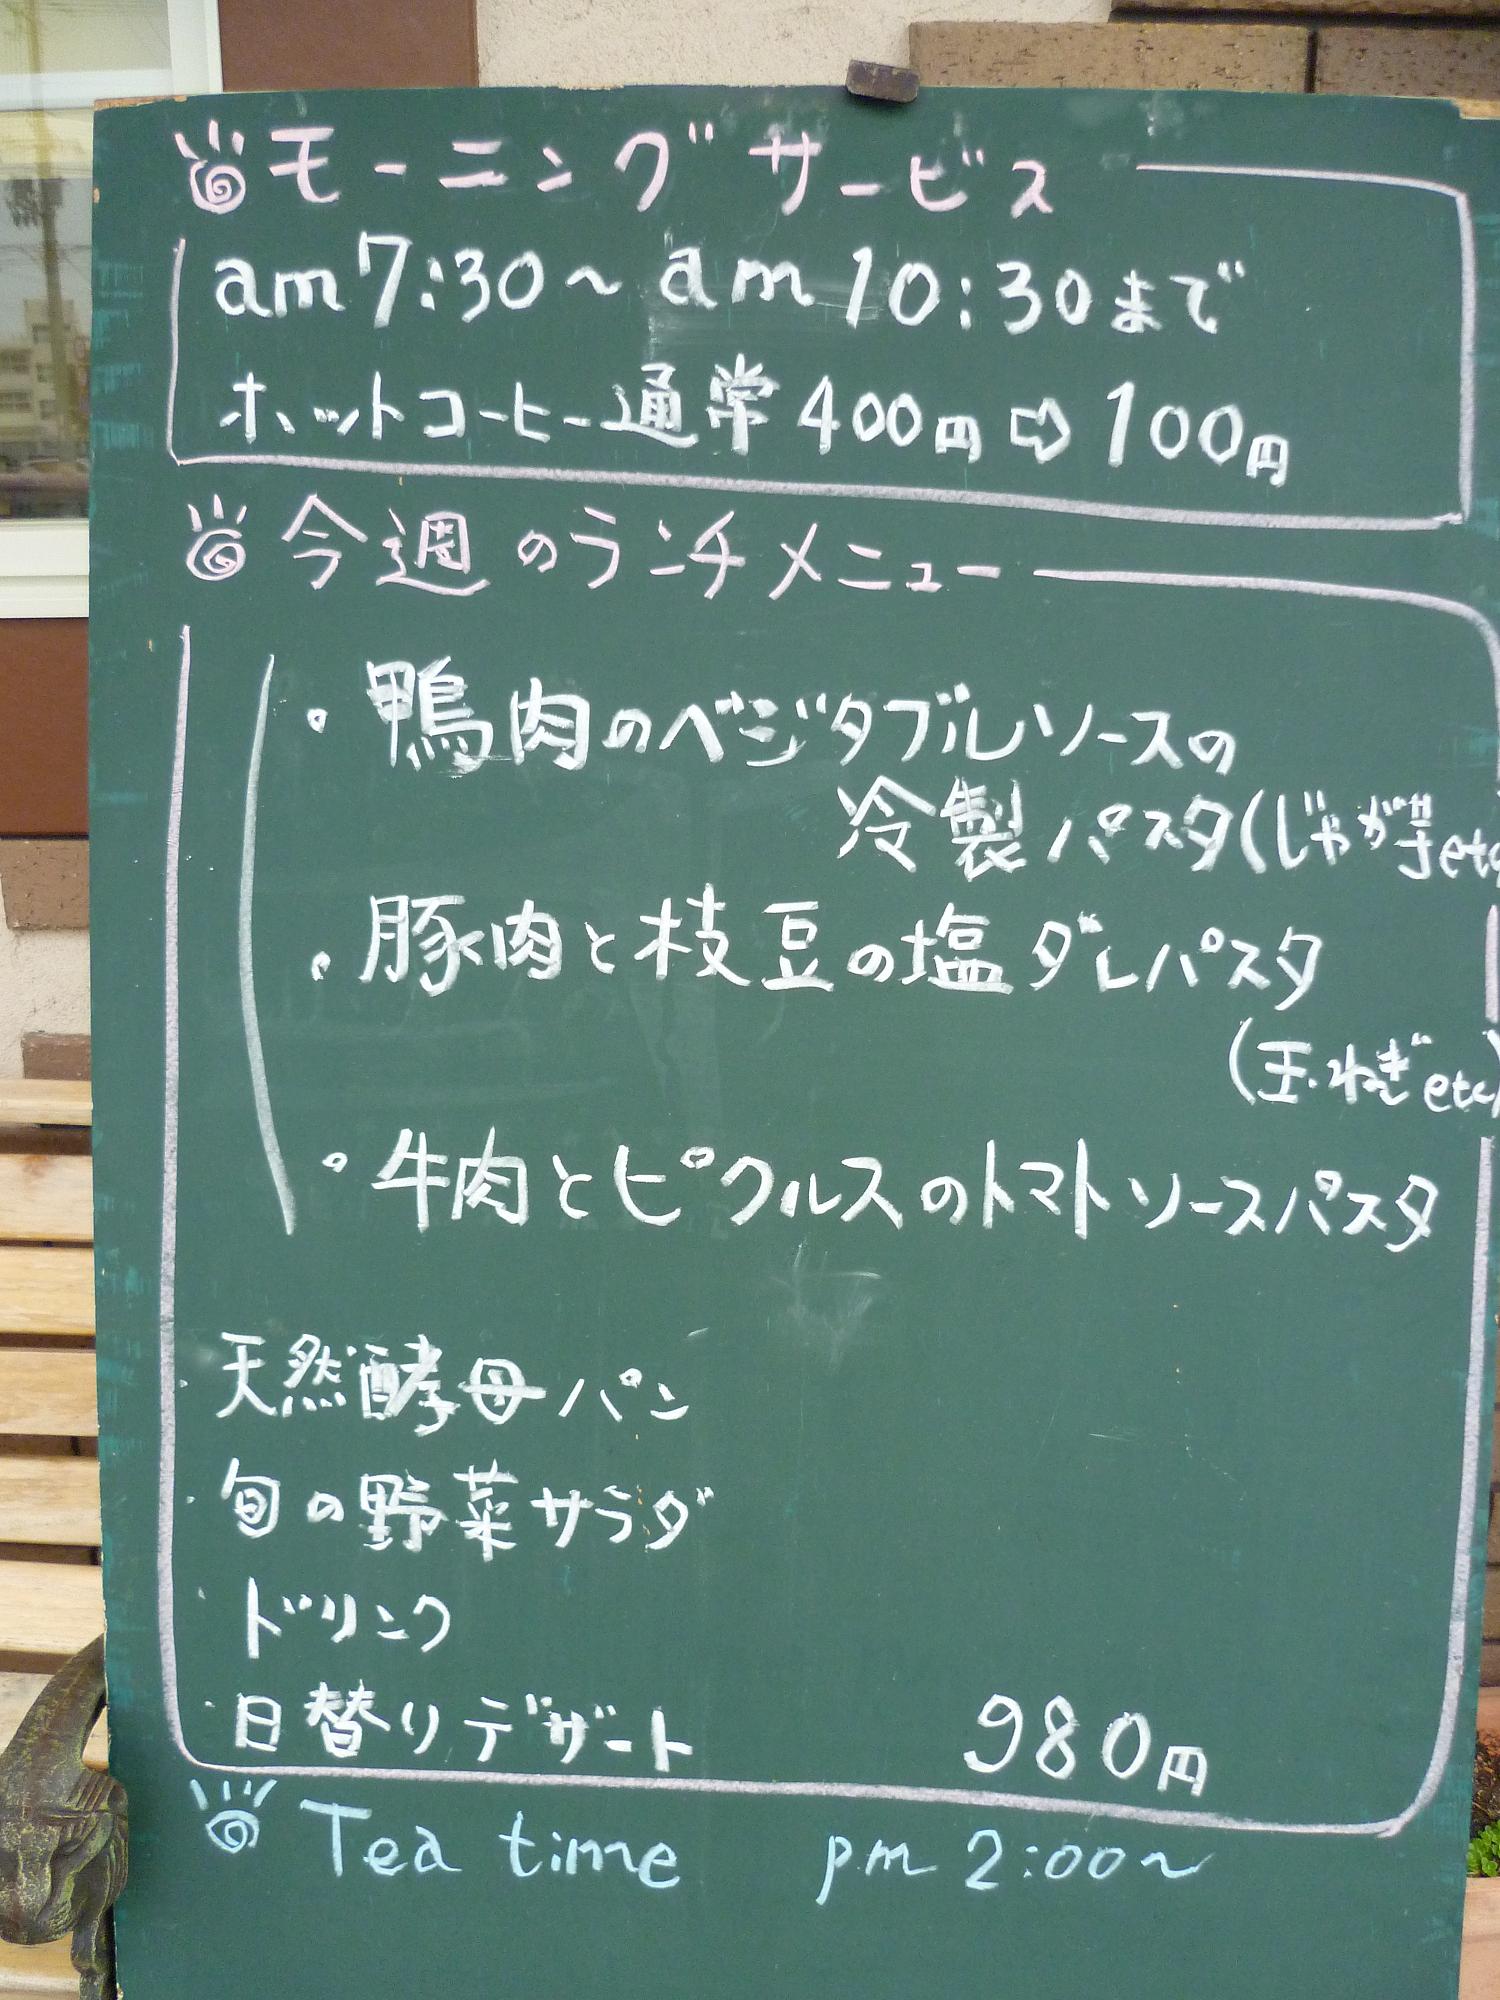 モーニングサービス
am7:30～am10:30まで
ホットコーヒー通常400円⇨100円
今週のランチメニュー
・鴨肉のベジタブルソースの
冷製パスタ(じゃが芋etc
・豚肉と枝豆の塩ダレパスタ
(玉ねぎetc)
・牛肉とピクルスのトマトソースパスタ
・天然酵母パン
・旬の野菜サラダ
・ドリンク
・日替りデザート 980円
Tea time pm 2:00～